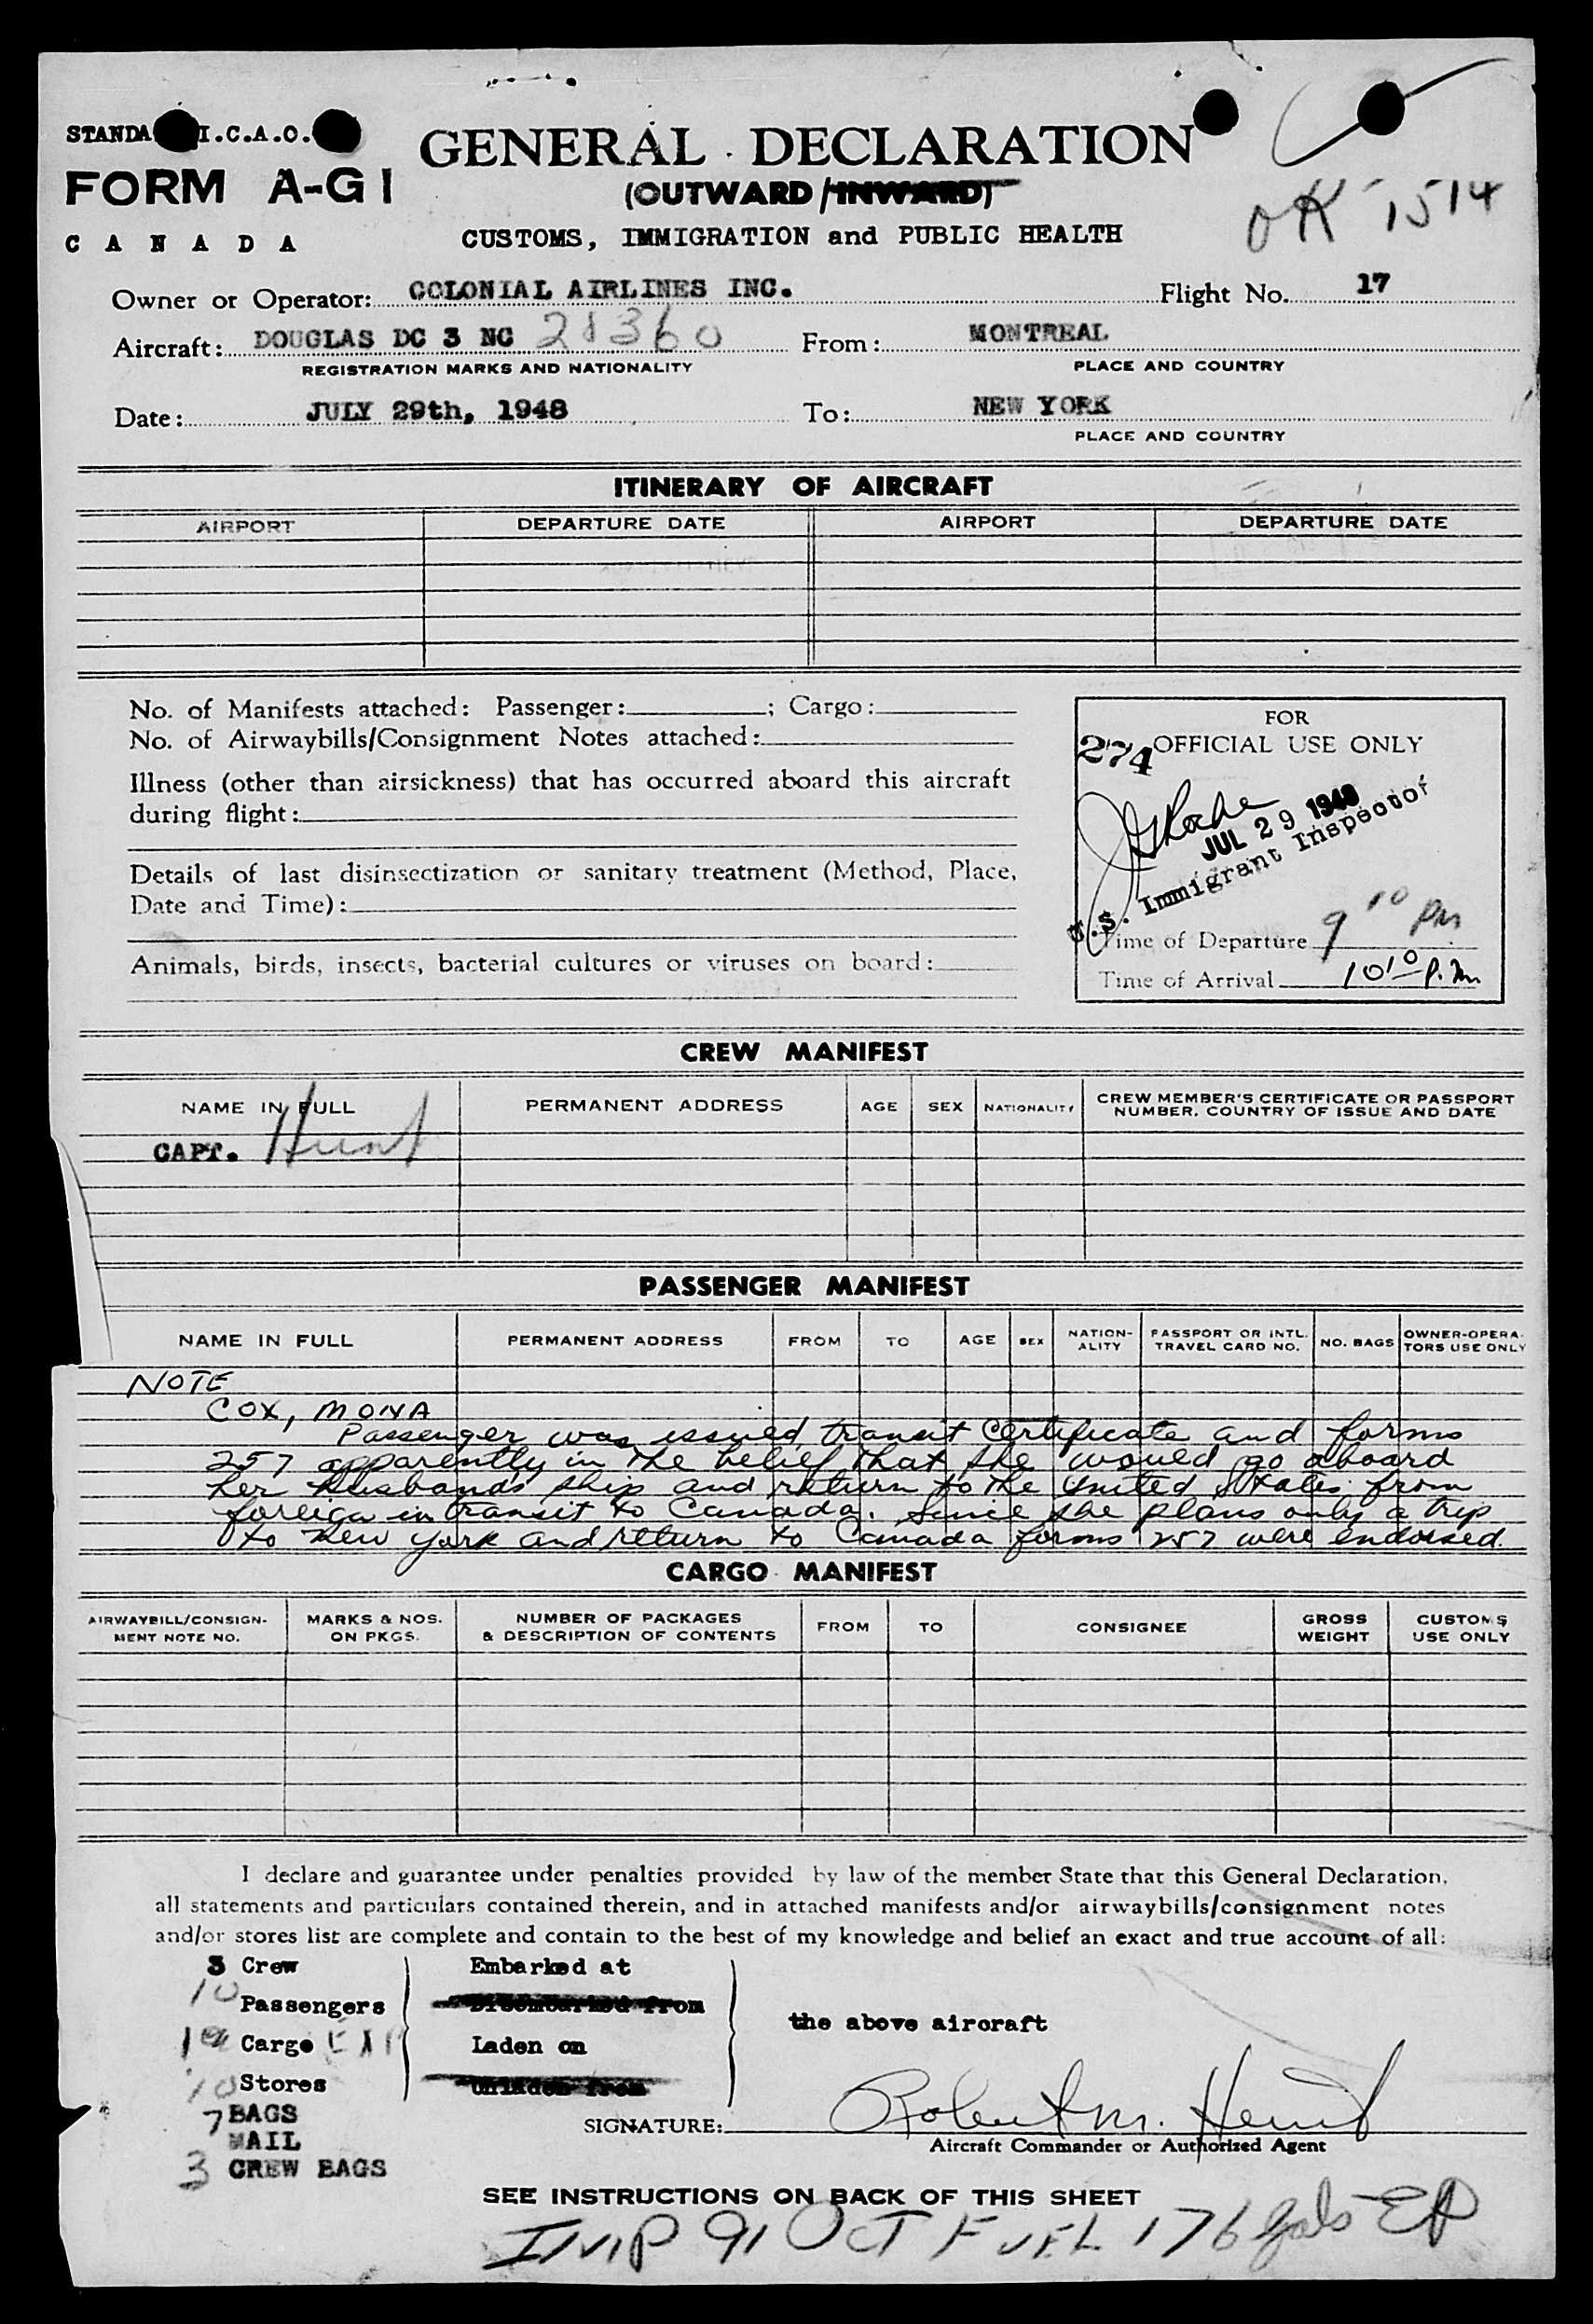 STANDA I.C.A.O.
FORM A-G1
CANADA
GENERAL DECLARATION
(OUTWARD/INWARD)
CUSTOMS, IMMIGRATION and PUBLIC HEALTH
OK 1514
Owner or Operator: COLONIAL AIRLINES INC. Flight No. 17
Aircraft: DOUGLAS DC 3 NC 28360 From: MONTREAL
REGISTRATION MARKS AND NATIONALITY PLACE AND COUNTRY
Date: JULY 29th, 1948 To: NEW YORK
PLACE AND COUNTRY
ITINERARY OF AIRCRAFT
AIRPORT DEPARTURE DATE AIRPORT DEPARTURE DATE
No. of Manifests attached: Passenger: ; Cargo:
No. of Airwaybills/Consignment Notes attached:
Illness (other than airsickness) that has occurred aboard this aircraft
during flight:
Details of last disinsectization or sanitary treatment (Method, Place,
Date and Time):
Animals, birds, insects, bacterial cultures or viruses on board:
FOR
274 OFFICIAL USE ONLY
JUL 29 1948
U.S. Immigrant Inspector
Time of Departure 9 10 PM
Time of Arrival 10 10 P.M
CREW MANIFEST
NAME IN FULL PERMANENT ADDRESS AGE SEX NATIONALITY CREW MEMBER'S CERTIFICATE OR PASSPORT
NUMBER, COUNTRY OF ISSUE AND DATE
CAPT. Hunt
PASSENGER MANIFEST
NAME IN FULL PERMANENT ADDRESS FROM TO AGE SEX NATION-
ALITY PASSPORT OR INTL.
TRAVEL CARD NO. NO. BAGS OWNER-OPERA-
TORS USE ONLY
NOTE
COX, MONA
Passenger was issued transit Certificate and forms
257 apparently in the belief that she would go aboard
her husbands ship and return to the United States from
foreign in transit to Canada. Since she plans only a trip
to New York and return to Canada forms 257 were endorsed.
CARGO MANIFEST
AIRWAYBILL/CONSIGN-
MENT NOTE NO. MARKS & NOS.
ON PKGS. NUMBER OF PACKAGES
& DESCRIPTION OF CONTENTS FROM TO CONSIGNEE GROSS
WEIGHT CUSTOMS
USE ONLY
I declare and guarantee under penalties provided by law of the member State that this General Declaration,
all statements and particulars contained therein, and in attached manifests and/or airwaybills/consignment notes
and/or stores list are complete and contain to the best of my knowledge and belief an exact and true account of all:
3 Crew Embarked at
10 Passengers Disembarked from
the above aircraft
Cargo Laden on
Stores Unladen from
7 BAGS
MAIL
3 CREW BAGS
SIGNATURE: Robert M. Hunt
Aircraft Commander or Authorized Agent
SEE INSTRUCTIONS ON BACK OF THIS SHEET
IMP 91 OCT FUEL 176 Gals